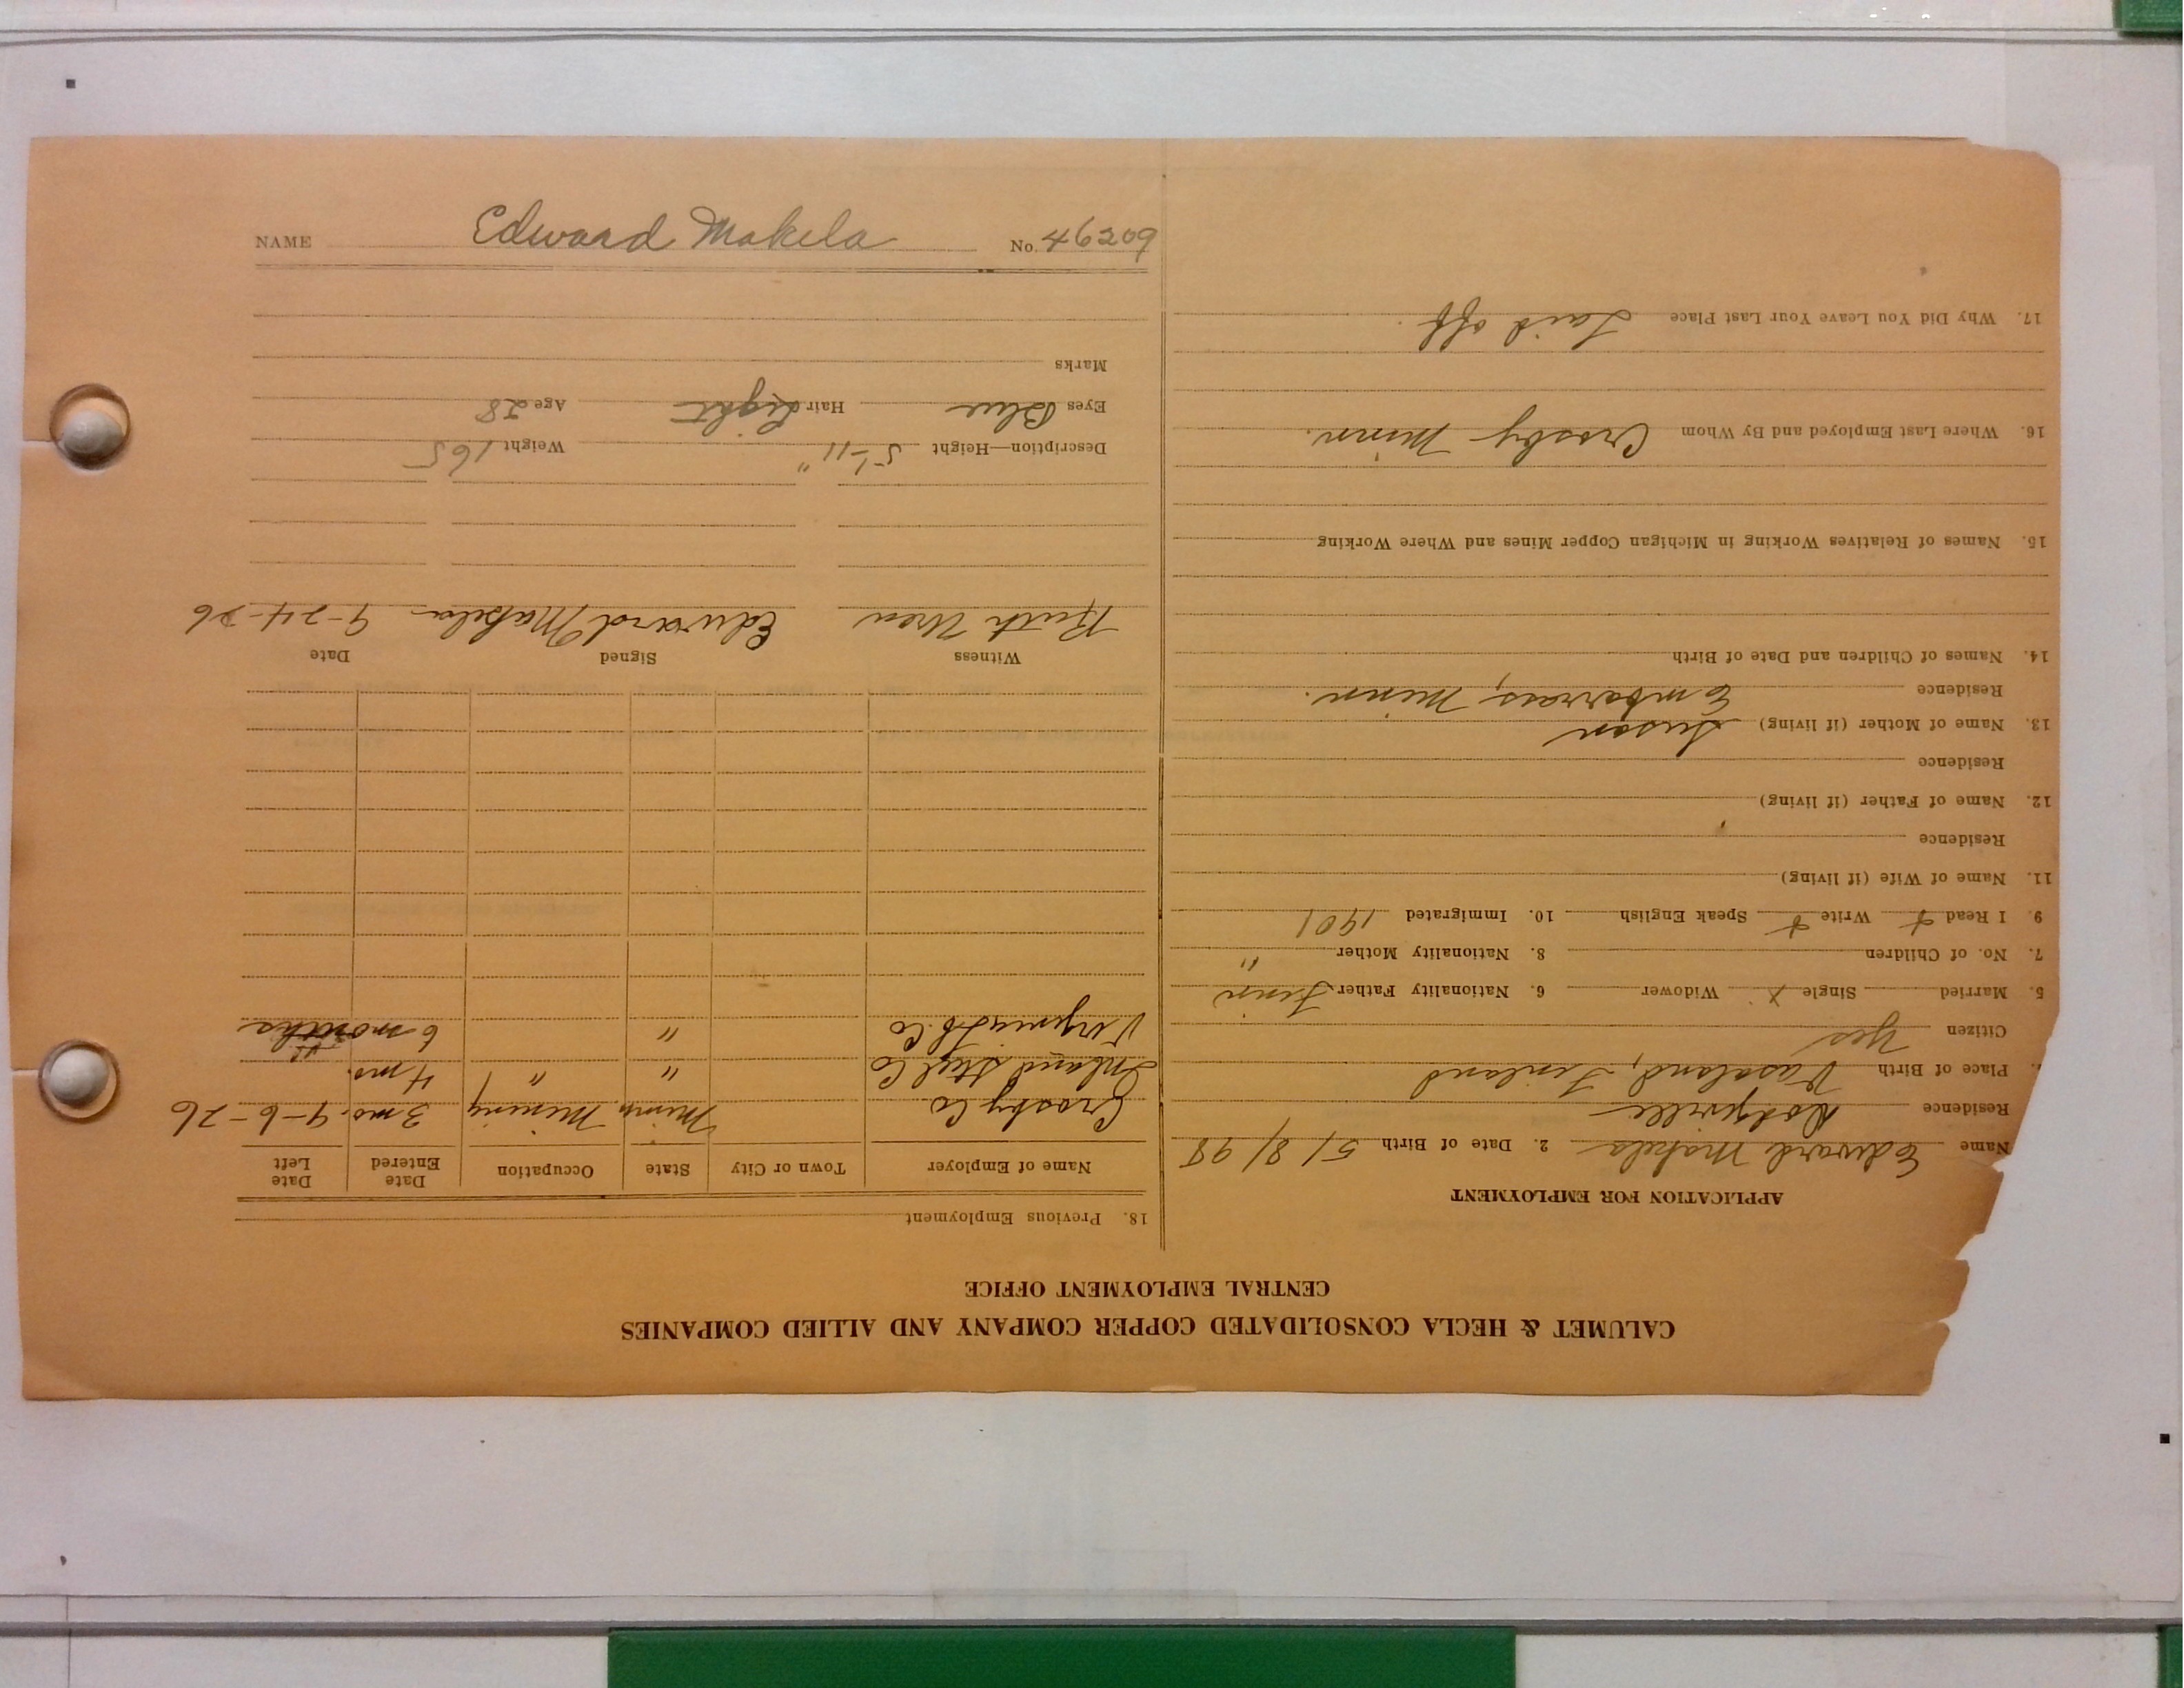 NAME Edward Makela No. 46209
CALUMET & HECLA CONSOLIDATED COPPER COMPANY AND ALLIED COMPANIES
CENTRAL EMPLOYMENT OFFICE
APPLICATION FOR EMPLOYMENT
Name Edward Makela 2. Date of Birth 5/8/98
Residence
Place of Birth Vasaland, Finland
Citizen Yes
5. Married Single x Widower 6. Nationality Father Finn
7. No. of Children 8. Nationality Mother "
9. I Read x Write x Speak English 10. Immigrated 1901
11. Name of Wife (if living)
Residence
12. Name of Father (if living)
Residence
13. Name of Mother (if living) Susan
Residence Embarrass, Minn.
14. Names of Children and Date of Birth
15. Names of Relatives Working in Michigan Copper Mines and Where Working
16. Where Last Employed and By Whom Crosby Minn.
17. Why Did You Leave Your Last Place Laid off.
18. Previous Employment
Name of Employer Town or City State Occupation Date Entered Date Left
Crosby Co Minn Mining 3 mo. 9-6-26
Inland Steel Co " " 4 mo.
Virginia Co " 6 months
Witness Signed Date
Ruth Uren Edward Makela 9-24-26
Description—Height 5'-11" Weight 165
Eyes Blue Hair Light Age 28
Marks